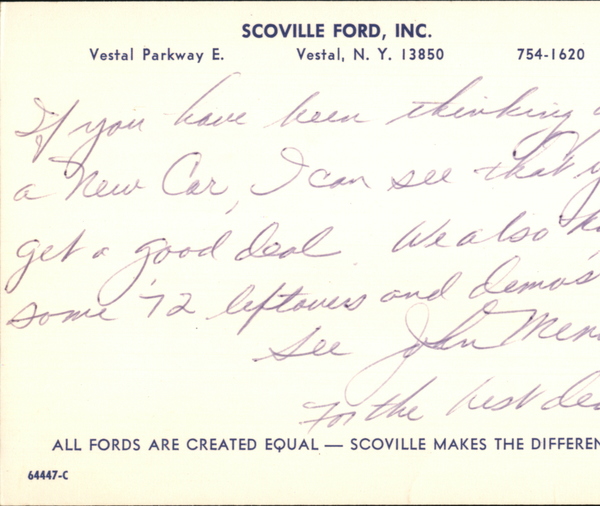 SCOVILLE FORD, INC.
Vestal Parkway E. Vestal, N. Y. 13850 754-1620
If you have been thinking
a New Car, I can see that
get a good deal. We also
some '72 leftovers and demos
See John
For the best
ALL FORDS ARE CREATED EQUAL — SCOVILLE MAKES THE DIFFEREN
64447-C